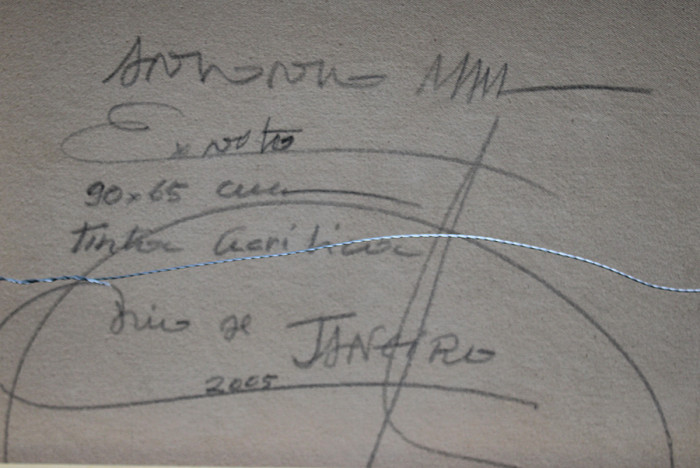 Antonio Maia
Ex voto
90x65 cm
Tinta acrílica
Rio de
JANEIRO
2005